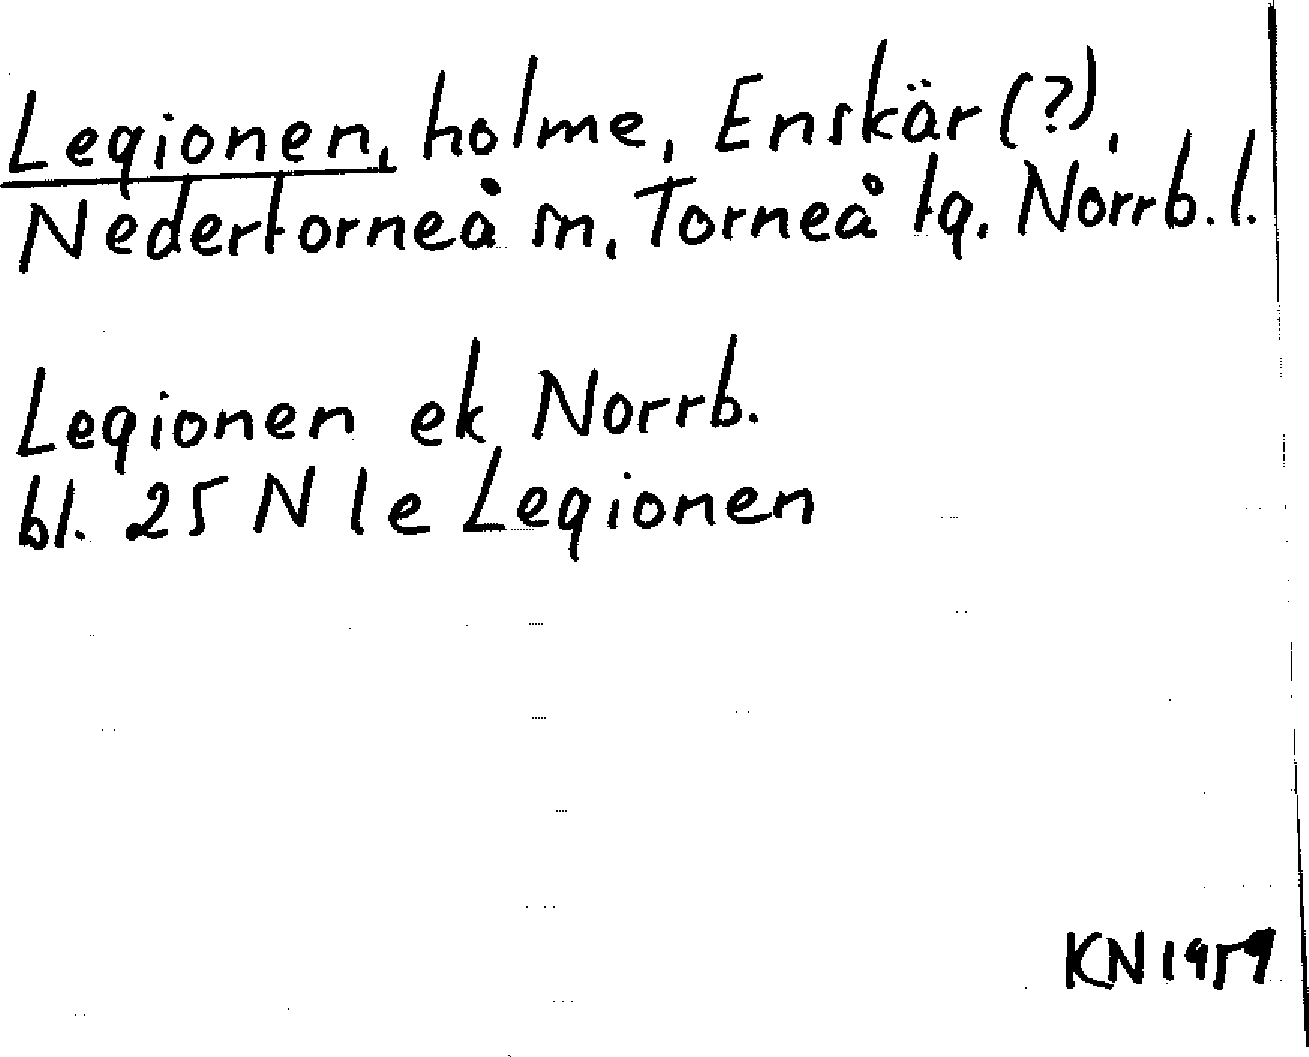 Legionen, holme, Enskär (?),
Nedertorneå sn, Torneå tg, Norrb. l.
Legionen ek Norrb.
bl. 25 N le Legionen
KN 1959